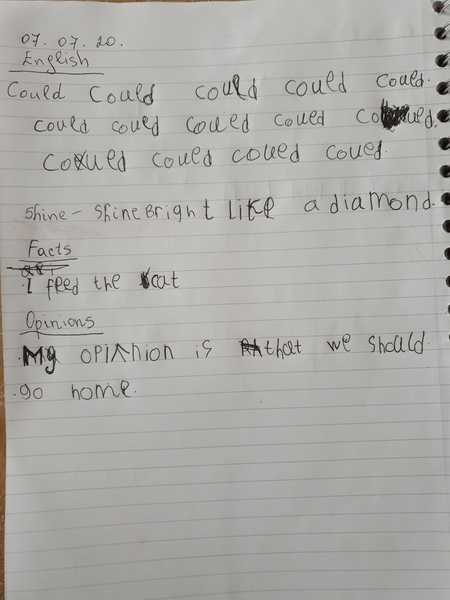 07.07.20.
English
Could Could could could could.
could could could could could.
could could coued coued.
Shine - Shine Bright Like a diamond.
Facts
·I feed the cat
Opinions
·My opinion is that we should
·go home.